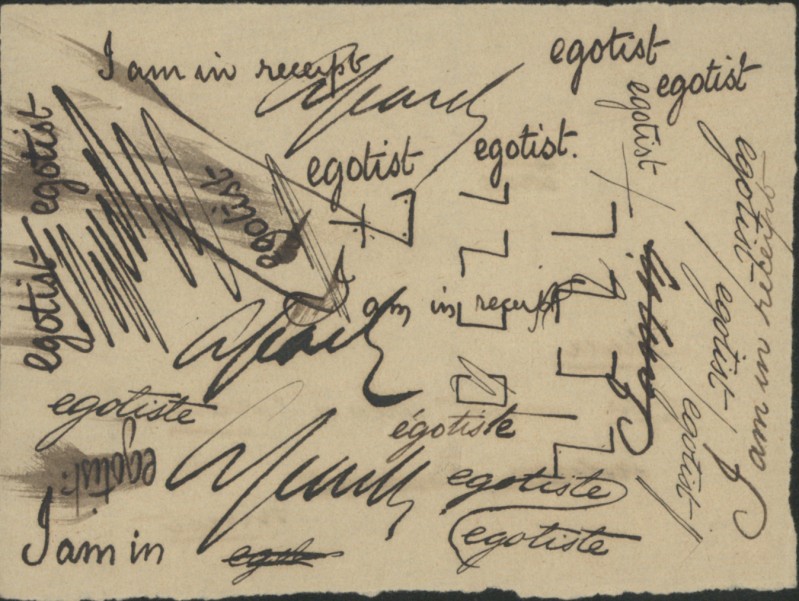 I am in receipt
egotist
egotist
egotist
egotist
egotist
egotist.
egotist
egotist
I am in receipt
egotist
I am in receipt
egotist
egotiste
égotiste
egotist
egotist.
egotiste
egotiste
I am in